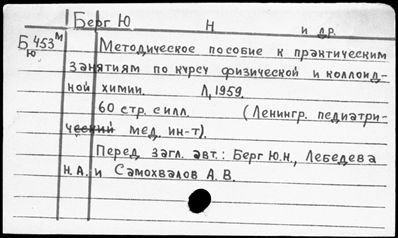 Берг Ю Н и др.
Б 453м Методическое пособие к практическим
ю занятиям по курсу физической и коллоид-
ной химии. Л, 1959.
60 стр. с илл. (Ленингр. педиатри-
ческий мед. ин-т).
Перед загл. авт.: Берг Ю.Н., Лебедева
Н.А. и Самохвалов А.В.